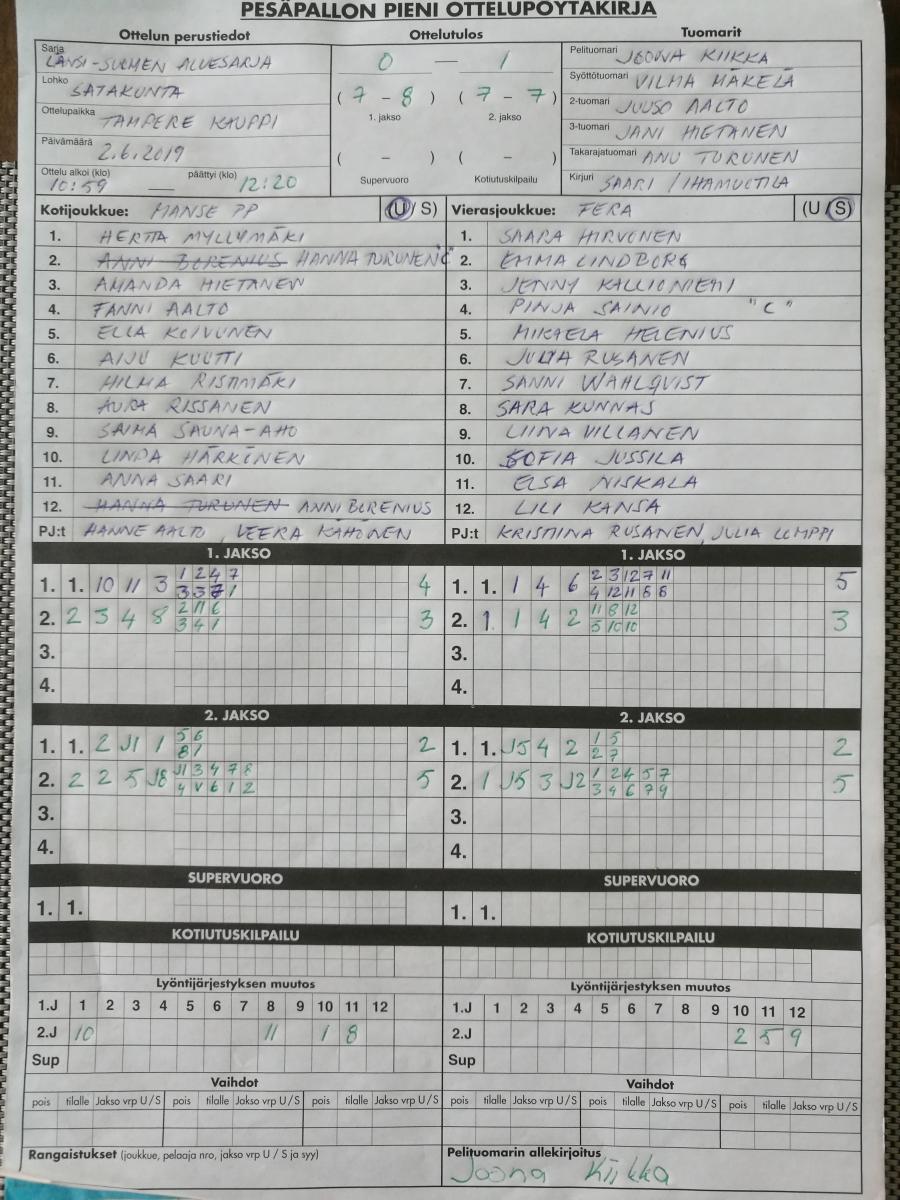 PESÄPALLON PIENI OTTELUPÖYTÄKIRJA
Ottelun perustiedot
Sarja
LÄNSI-SUOMEN ALUESARJA
Lohko
SATAKUNTA
Ottelupaikka
TAMPERE KAUPPI
Päivämäärä
2.6.2019
Ottelu alkoi (klo) päättyi (klo)
10:59 — 12:20
Ottelutulos
0 — 1
( 7 - 8 ) ( 7 - 7 )
1. jakso 2. jakso
( - ) ( - )
Supervuoro Kotiutuskilpailu
Tuomarit
Pelituomari JOONA KIIKKA
Syöttötuomari VILMA MÄKELÄ
2-tuomari JUUSO AALTO
3-tuomari JANI HIETANEN
Takarajatuomari ANU TURUNEN
Kirjuri SAARI / IHAMUOTILA
Kotijoukkue: MANSE PP (U / S)
1. HERTTA MYLLYMÄKI
2. ANNI BORENIUS HANNA TURUNEN C
3. AMANDA HIETANEN
4. FANNI AALTO
5. ELLA KOIVUNEN
6. AIJU KUUTTI
7. HILMA RISTIMÄKI
8. AURA RISSANEN
9. SAIMA SAUNA-AHO
10. LINDA HÄRKÖNEN
11. ANNA SAARI
12. HANNA TURUNEN ANNI BORENIUS
PJ:t HANNE AALTO, VEERA KÄHÖNEN
Vierasjoukkue: FERA (U / S)
1. SAARA HIRVONEN
2. EMMA LINDBORG
3. JENNY KALLIONIEMI
4. PINJA SAINIO "C"
5. MIKAELA HELENIUS
6. JULIA RUSANEN
7. SANNI WAHLQVIST
8. SARA KUNNAS
9. LIINA VILLANEN
10. SOFIA JUSSILA
11. ELSA NISKALA
12. LILI KANSA
PJ:t KRISTIINA RUSANEN, JULIA LUMPPI
1. JAKSO
1. 1. 10 11 3 1 2 4 7 4
3 3 1
2. 2 3 4 8 2 11 6 3
3 4 1
3.
4.
1. JAKSO
1. 1. 1 4 6 2 3 12 7 11 5
4 12 11 8 8
2. 1. 1 4 2 11 8 12 3
5 10 10
3.
4.
2. JAKSO
1. 1. 2 J1 1 5 6 2
8 1
2. 2 2 5 J8 J1 3 4 7 8 5
4 V 6 1 2
3.
4.
2. JAKSO
1. 1. J5 4 2 1 5 2
2 7
2. 1 J5 3 J2 1 2 4 5 7 5
3 4 6 7 9
3.
4.
SUPERVUORO
1. 1.
SUPERVUORO
1. 1.
KOTIUTUSKILPAILU
KOTIUTUSKILPAILU
Lyöntijärjestyksen muutos
1.J 1 2 3 4 5 6 7 8 9 10 11 12
2.J 10 11 1 8
Sup
Lyöntijärjestyksen muutos
1.J 1 2 3 4 5 6 7 8 9 10 11 12
2.J 2 5 9
Sup
Vaihdot
pois tilalle Jakso vrp U / S pois tilalle Jakso vrp U / S pois tilalle Jakso vrp U / S
Vaihdot
pois tilalle Jakso vrp U / S pois tilalle Jakso vrp U / S pois tilalle Jakso vrp U / S
Rangaistukset (joukkue, pelaaja nro, jakso vrp U / S ja syy)
Pelituomarin allekirjoitus
Joona Kiikka